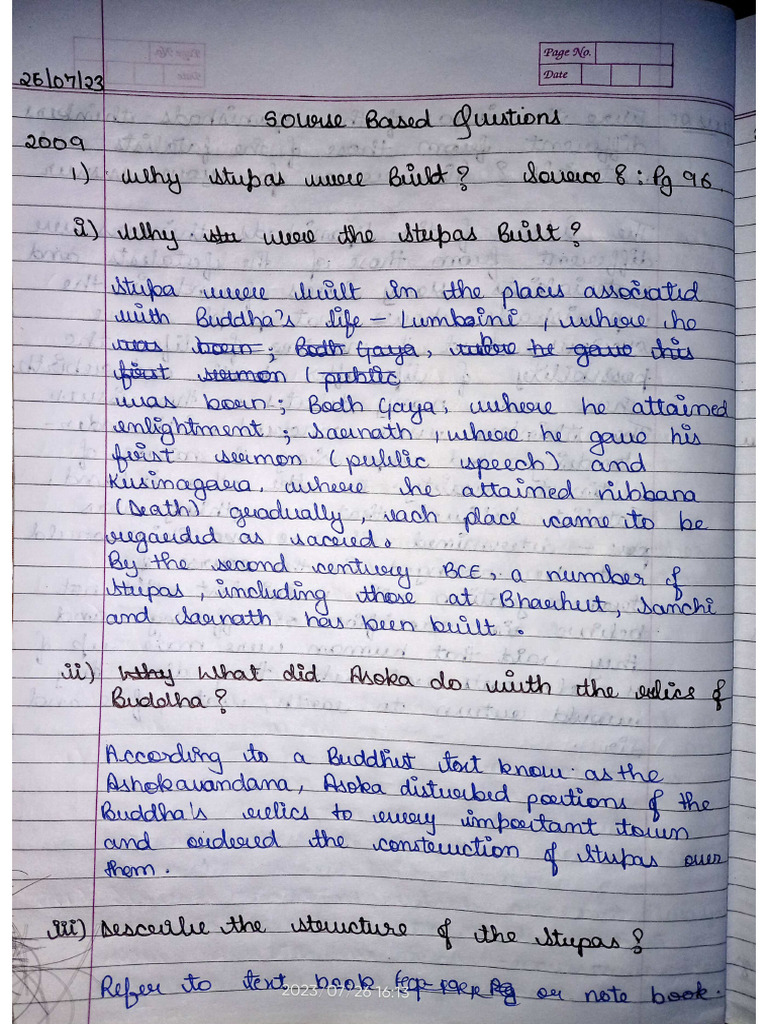 Page No.
Date
26/07/23
Sourse Based Questions
2009
1) Why stupas were Built? Source 8 : Pg 96.
i) Why stu were the stupas Built?
Stupa were built in the places associated
with Buddha's life - Lumbini, where he
was born; Bodh Gaya, where he gave his
first sermon (public
was born; Bodh Gaya, where he attained
enlightment; Saernath, where he gave his
first sermon (public speech) and
Kusinagara, where he attained nibbana
(Death) gradually, each place came to be
regarded as sacred.
By the second century BCE, a number of
stupas, including those at Bharhut, Sanchi
and Sarnath has been built.
ii) Why What did Asoka do with the relics of
Buddha?
According to a Buddhist text know as the
Ashokavandana, Asoka disturbed portions of the
Buddha's relics to every important town
and ordered the construction of stupas over
them.
iii) Describe the structure of the stupas?
Refer to text book Pg or note book.
2023/07/26 16:13